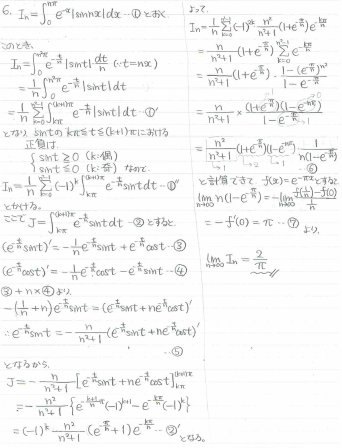 6. Iₙ = ∫₀^{nπ} e^{-x}|sin nx|dx …① とおく.
このとき,
Iₙ = ∫₀^{n²π} e^{-t/n}|sin t| dt/n (∵ t=nx)
= 1/n ∫₀^{n²π} e^{-t/n}|sin t|dt
= 1/n Σ_{k=0}^{n²-1} ∫_{kπ}^{(k+1)π} e^{-t/n}|sin t|dt …①'
となり sin t の kπ≦t≦(k+1)π における
正負は
{ sin t ≧ 0 (k:偶)
sin t ≦ 0 (k:奇) なので
Iₙ = 1/n Σ_{k=0}^{n²-1} (-1)^k ∫_{kπ}^{(k+1)π} e^{-t/n} sin t dt …①''
とかける。
ここで J = ∫_{kπ}^{(k+1)π} e^{-t/n} sin t dt …② とすると
(e^{-t/n} sin t)' = -1/n e^{-t/n} sin t + e^{-t/n} cos t …③
(e^{-t/n} cos t)' = -1/n e^{-t/n} cos t - e^{-t/n} sin t …④
③ + n×④ より
-(1/n + n) e^{-t/n} sin t = (e^{-t/n} sin t + n e^{-t/n} cos t)'
∴ e^{-t/n} sin t = -n/(n²+1) (e^{-t/n} sin t + n e^{-t/n} cos t)'
…⑤
となるから.
J = -n/(n²+1) [e^{-t/n} sin t + n e^{-t/n} cos t]_{kπ}^{(k+1)π}
= -n²/(n²+1) {e^{-(k+1)π/n}(-1)^{k+1} - e^{-kπ/n}(-1)^k}
= (-1)^k n²/(n²+1) (e^{-π/n}+1) e^{-kπ/n} …②' となる。
よって,
Iₙ = 1/n Σ_{k=0}^{n²-1} (-1)^{2k} n²/(n²+1) (1+e^{-π/n}) e^{-kπ/n}
= n/(n²+1) (1+e^{-π/n}) Σ_{k=0}^{n²-1} e^{-kπ/n}
= n/(n²+1) (1+e^{-π/n}) · (1-(e^{-π/n})^{n²})/(1-e^{-π/n})
= n/(n²+1) × (1+e^{-π/n})(1-e^{-nπ})/(1-e^{-π/n})
= n²/(n²+1) (1+e^{-π/n})(1-e^{-nπ}) · 1/(n(1-e^{-π/n}))
→1 →2 →1 …⑥
と計算できて f(x)=e^{-πx} とすると
lim_{n→∞} n(1-e^{-π/n}) = -lim_{n→∞} (f(1/n)-f(0))/(1/n)
= -f'(0) = π …⑦
より,
lim_{n→∞} Iₙ = 2/π